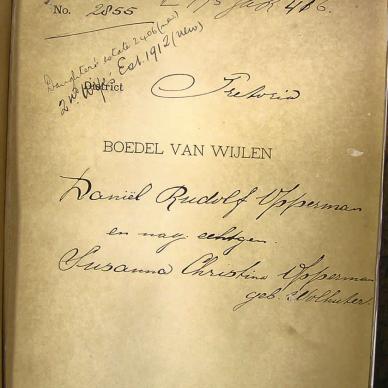 No. 2855
Daughter's estate 2406 (new)
2nd Wife's Est. 1912 (new)
District Pretoria
BOEDEL VAN WIJLEN
Daniël Rudolf Opperman
en nag. echtgen.
Susanna Christina Opperman
geb. Wolhuter.